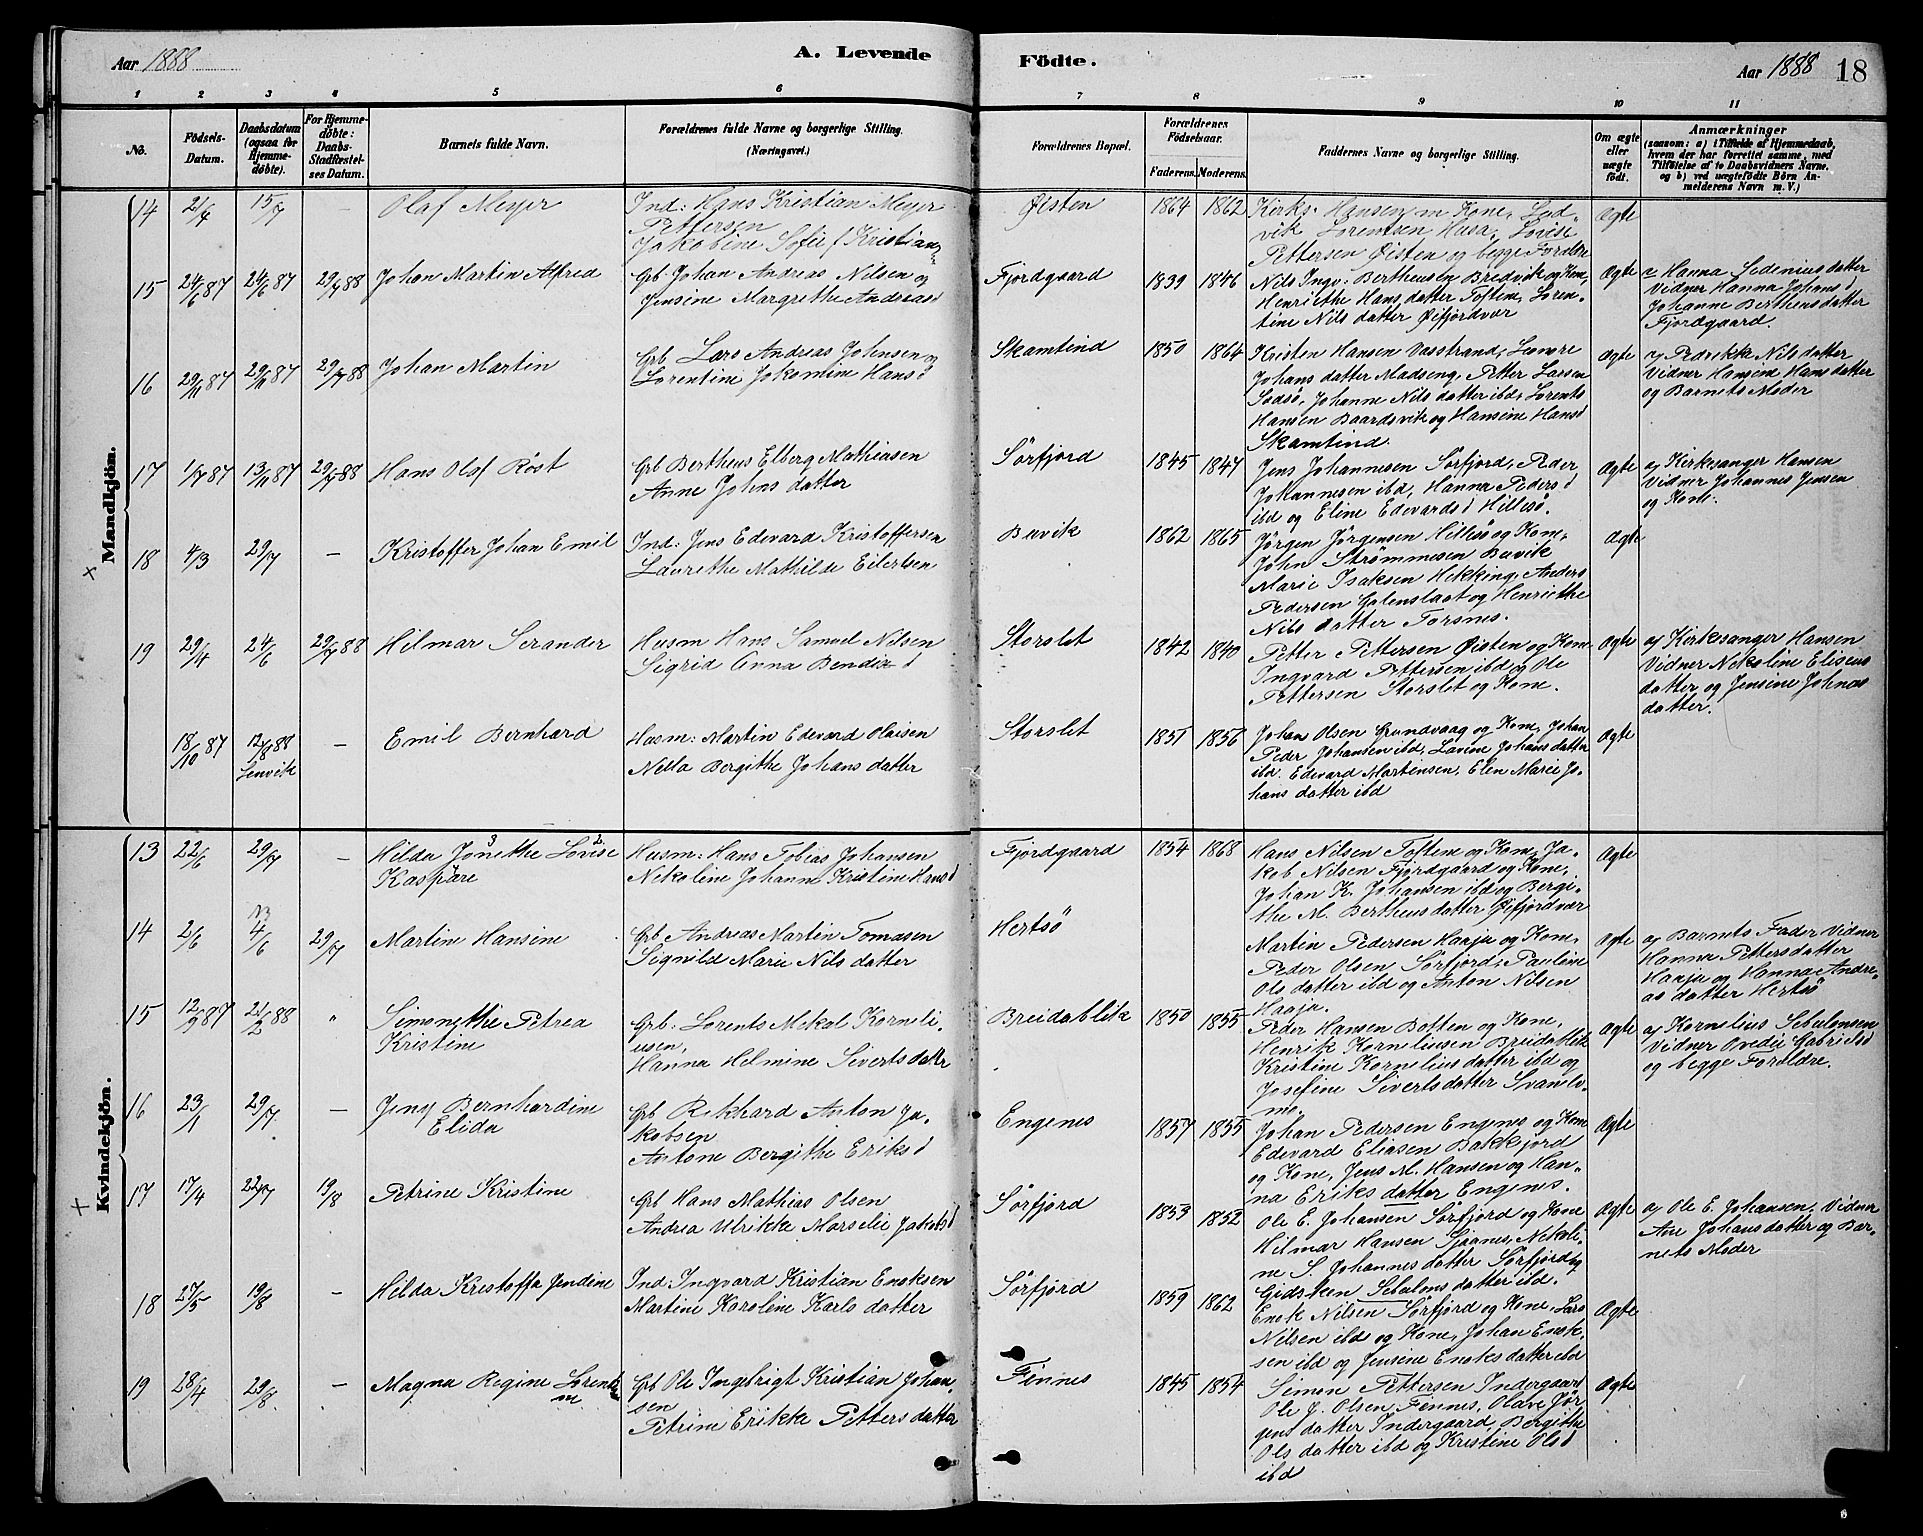 Aar 1888
A. Levende
Födte.
Aar 1888 18
1 2 3 4 5 6 7 8 9 10 11
No.
Födsels-
Datum.
Daabsdatum
(ogsaa for
Hjemme-
døbte).
For Hjemme-
døbte:
Daabs-
Stadfæstel-
ses Datum.
Barnets fulde Navn.
Forældrenes fulde Navne og borgerlige Stilling.
(Næringsvei.)
Forældrenes Bopæl.
Forældrenes
Födselsaar.
Faderens. Moderens.
Faddernes Navne og borgerlige Stilling.
Om ægte
eller
uægte
födt.
Anmærkninger
(saasom: a) i Tilfælde af Hjemmedaab,
hvem der har forrettet samme, med
Tilföielse af to Daabsvidners Navne.
og b) ved uægtefödte Börn An-
melderens Navn m. V.)
Mandkjön.
14 15/7 — Olaf Meyer
Ind: Hans Kristian Meyer
Pettersen
Jakobine Sofie f Kristian
Øisten 1864 1862
Kirks. Hansen m Kone, Lud-
vik Lorentsen Husø, Lovise
Pettersen Øisten og begge Foreldre
Ægte
15 24/6 87 24/6 87 29/7 88 Johan Martin Alfred
Grb Johan Andreas Nilsen og
Jensine Margrethe Andreasd
Fjordgaard 1839 1846
Nils Ingv. Bertheusen Bredvik og Kone,
Henriethe Hans datter Toftene, Loren-
tine Nils datter Øifjordvær
Ægte
a Hanna Sedenius datter
Vidner Hanna Johansd
Johanne Bertheus datter
Fjordgaard.
16 29/11 87 29/11 87 29/7 88 Johan Martin
Grb Lars Andreas Johnsen og
Lorentine Jakomine Hansd
Skamtind 1850 1864
Kristen Hansen Vasstrand,
Johans datter Madseng, Petter Larsen
Johanne Nils datter ibd, Lorents
Hansen Baardsvik og Hansine Hansd
Skamtind.
Ægte
a, Fredrikke Nils datter
Vidner Hansine Hans datter
og Barnets Moder
17 1/7 87 13/11 87 29/7 88 Hans Olaf Röst
Grb Bertheus Elberg Mathiasen
Anne Johns datter
Sörfjord 1845 1847
Jens Johannesen Sörfjord, Peder
Johannesen ibd, Hanna Pedersd
ibd og Eline Edevardsd Hillesö.
Ægte
a, Kirkesanger Hansen
Vidner Johannes Jensen
og Kone.
18 4/3 29/7 — Kristoffer Johan Emil
Ind: Jens Edevard Kristoffersen
Laurethe Mathilde Eilertsen
Buvik 1862 1865
Jörgen Jörgensen Hillesö og Kone,
John Strömmesen Buvik
Marie Isaksen Hekking, Anders
Pedersen Galenslaat og Henriethe
Nils datter Torsnes.
Ægte
19 29/4 24/6 29/7 88 Hilmar Serander
Husm Hans Samuel Nilsen
Sigrid Enna Bendix d
Storslet 1842 1840
Petter Pettersen Øisten og Kone
Ingvard Pettersen ibd og Ole
Pettersen Storslet og Kone.
Ægte
a, Kirkesanger Hansen
Vidner Nekoline Eliseus
datter og Jensine Johnas
datter.
18/10 87 12/8 88
Lenvik
— Emil Bernhard
Husm: Martin Edevard Olaisen
Nella Bergithe Johans datter
Storslet 1851 1856
Johans Olsen Grundvaag og Kone, Johan
Peder Johansen ibd, Lavine Johans datter
ibd. Edevard Martinsen, Elen Marie Jo-
hans datter ibd
Ægte
Kvindekjön.
13 22/6 29/7 — Hilda Jonethe Lovise
Kaspare
Husm: Hans Tobias Johansen
Nekoline Johanne Kristine Hansd
Fjordgaard 1854 1868
Hans Nilsen Toftene og Kone, Ja-
kob Nilsen Fjordgaard og Kone,
Johan K. Johansen ibd og Bergi-
the M. Bertheus datter Øifjordvær
Ægte
14 2/6 4/6 29/7 Martine Hansine
Grb Andreas Martin Tomasen
Signild Marie Nils datter
Hertsö
Martin Pedersen Haaja og Kone,
Peder Olsen Sörfjord, Pauline
Ols datter ibd og Anton Nilsen
Haaja.
Ægte
a, Barnets Fader Vidner
Hanna Petters datter
Haaja og Hanna Andre-
as datter Hertsö
15 12/9 87 21/2 88 " Simonethe Petrea
Kristine
Grb. Lorents Mekal Korneli-
usen,
Hanna Helmine Siverts datter
Breidablik 1850 1855
Peder Hansen Botten og Kone,
Henrik Korneliusen Breidablik
Kristine Kornelius datter ibd og
Josefine Siverts datter Svanel-
mo.
Ægte
a, Kornelius Sebulonsen
Vidner Ovedie Gabrielsd
og begge Foreldre.
16 23/1 29/7 — Jeny Bernhardine
Elida
Grb Rikhard Anton Ja-
kobsen
Antone Bergithe Eriksd
Engenes 1857 1855
Johan Pedersen Engenes og Kone
Edevard Eliasen Bakkejord
og Kone, Jens M. Hansen og Han-
na Eriks datter Engenes.
Ægte
17 17/4 22/7 19/8 Petrine Kristine
Grb Hans Mathias Olsen
Andrea Ulrikke Marselie Jakobsd
Sörfjord 1853 1852
Ole E. Johansen Sörfjord og Kone
Hilmar Hansen Sjaanes, Nekoli-
ne S. Johannes datter Sörfjord og
Gidsken Sebulons datter ibd.
Ægte
a, Ole E. Johansen, Vidner
Ane Johans datter og Bar-
nets Moder
18 27/5 19/8 — Hilda Kristoffa Jendine
Ind: Ingvard Kristian Enoksen
Martine Karoline Karls datter
Sörfjord 1859 1862
Enok Nilsen Sörfjord og Kone, Lars
Nilsen ibd og Kone, Johan Enok-
sen ibd og Jensine Enoks datter ibd
Ægte
19 28/4 29/8 — Magna Regine Lorent
ine
Grb Ole Ingebrigt Kristian Johan-
sen
Petrine Erikke Petters datter
Finnes 1845 1854
Simon Pettersen Indergaard
Ole J. Olsen Finnes, Olave Jör-
gens datter Indergaard, Bergithe
Ols datter ibd og Kristine Olsd
ibd
Ægte